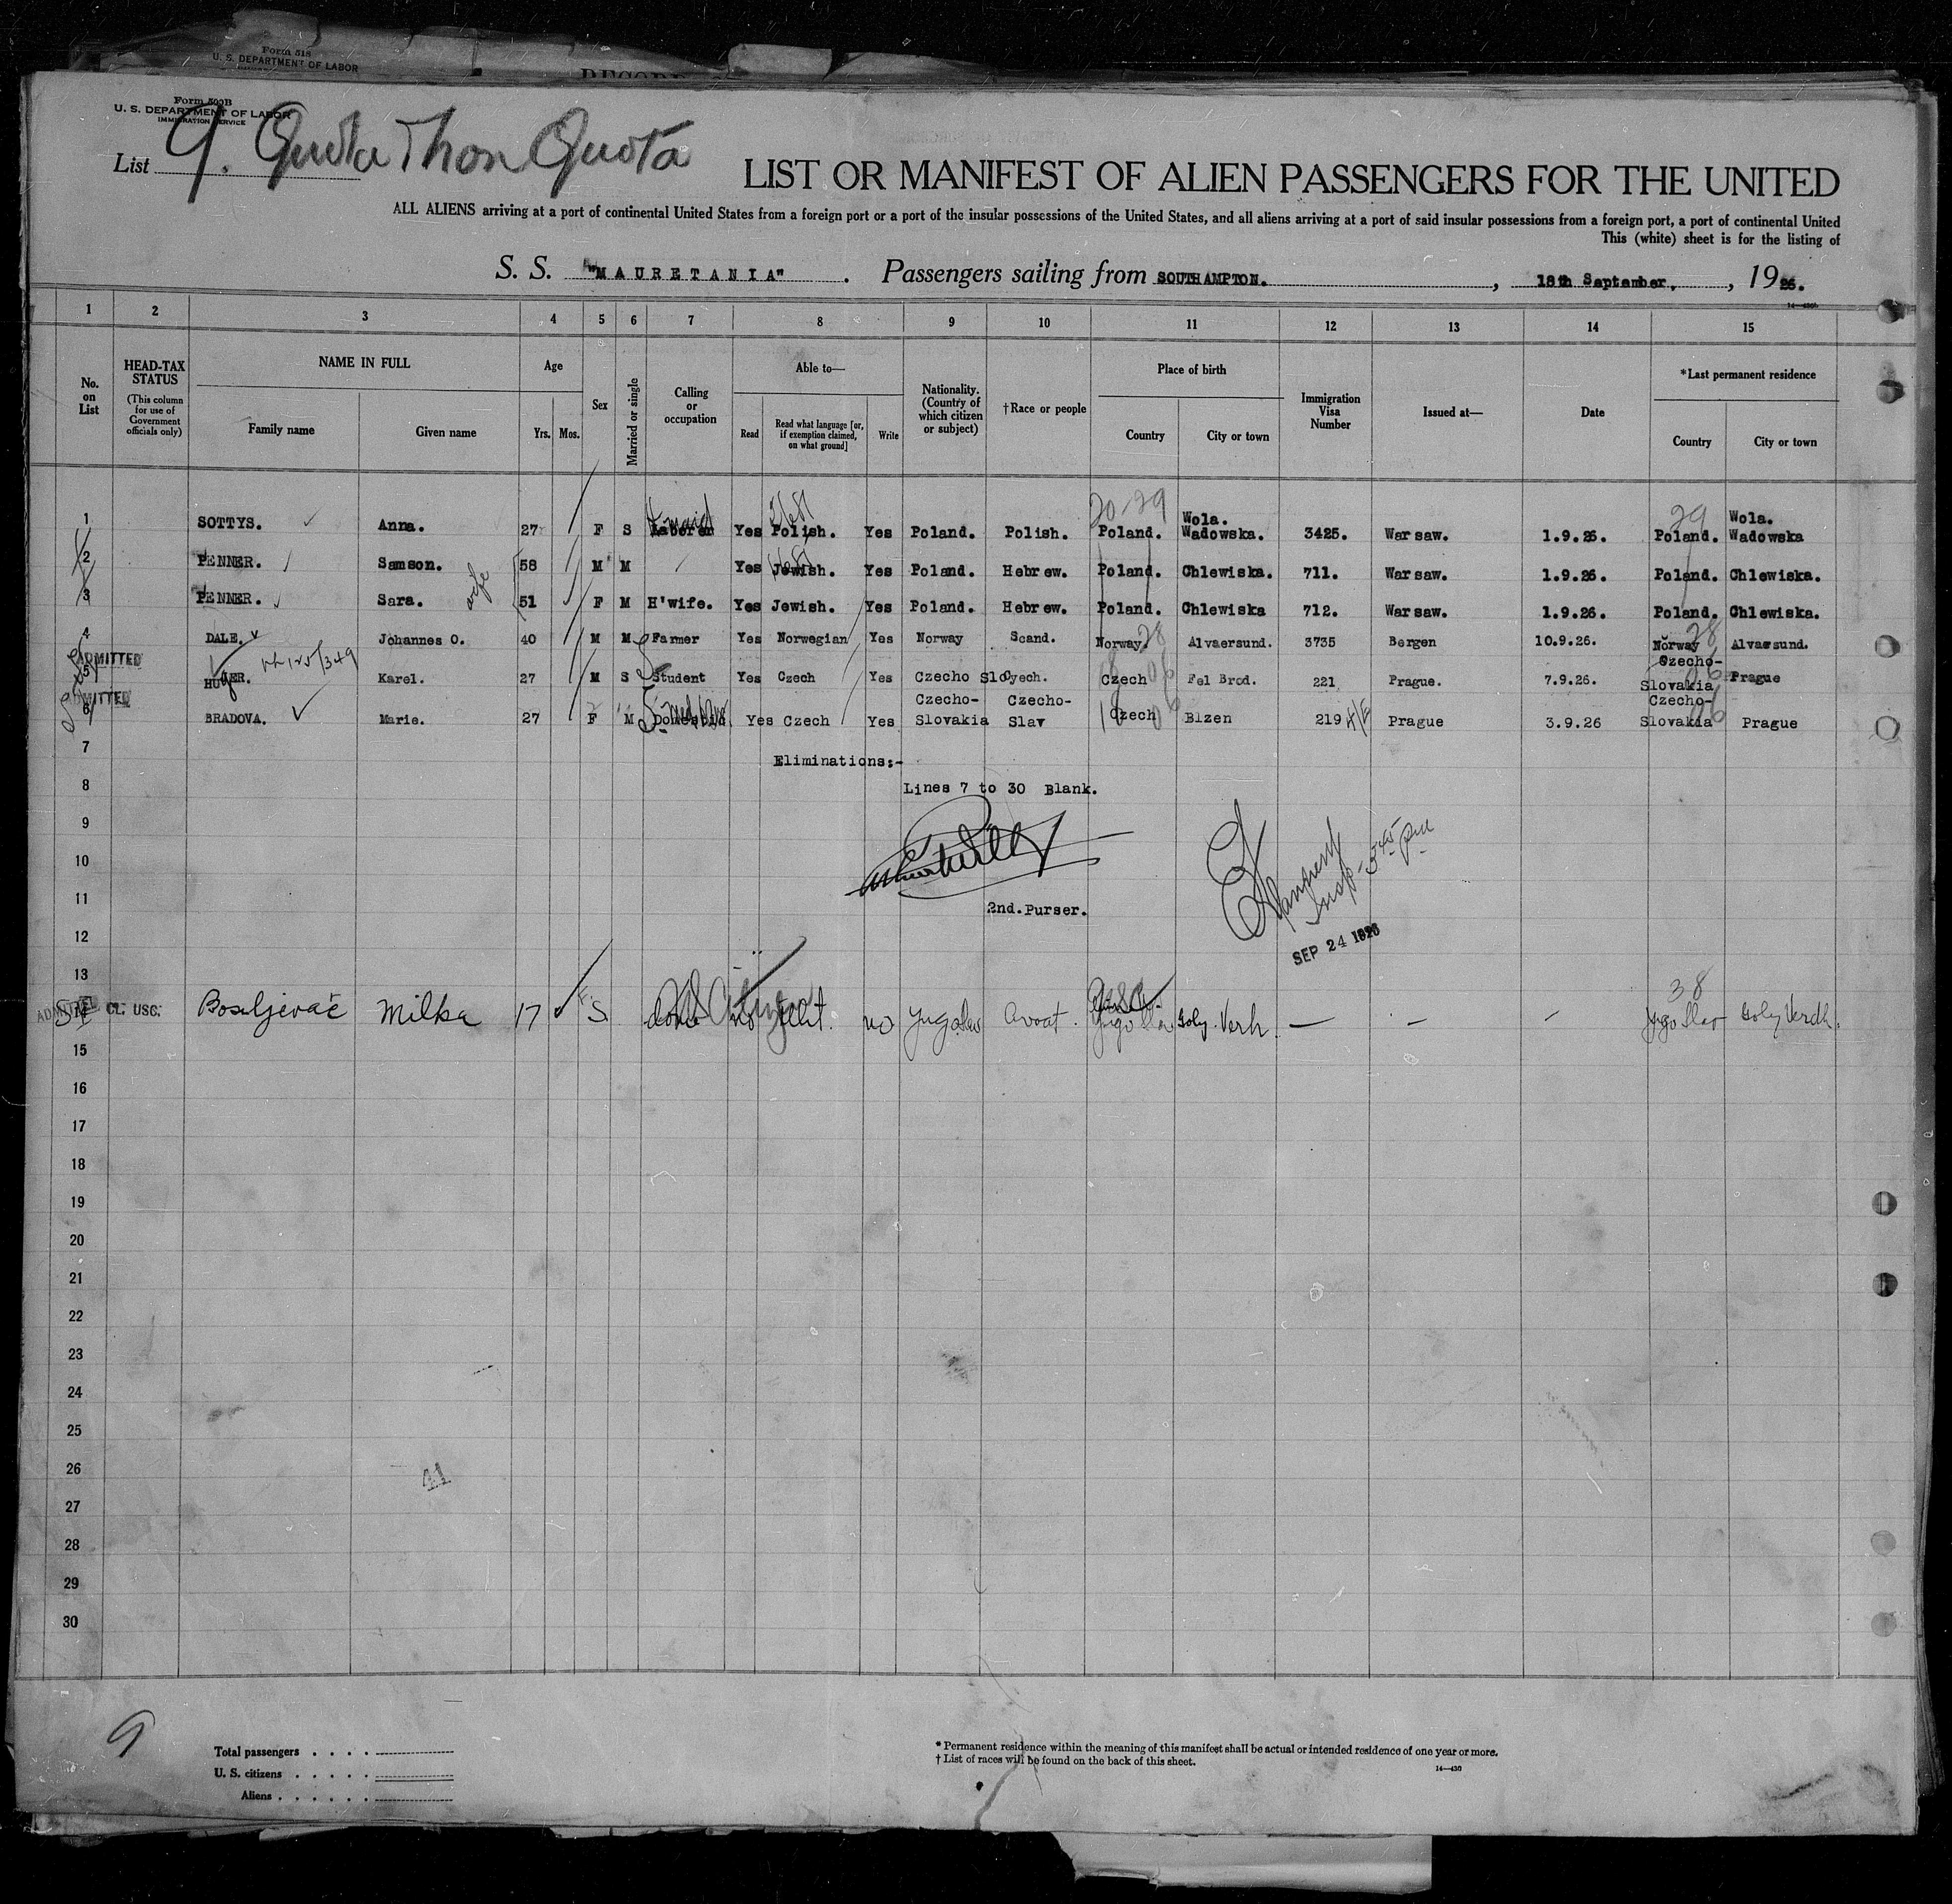 Form 518
U. S. DEPARTMENT OF LABOR
Form 500B
U. S. DEPARTMENT OF LABOR
IMMIGRATION SERVICE
List 9. Quota & Non Quota
LIST OR MANIFEST OF ALIEN PASSENGERS FOR THE UNITED
ALL ALIENS arriving at a port of continental United States from a foreign port or a port of the insular possessions of the United States, and all aliens arriving at a port of said insular possessions from a foreign port, a port of continental United
This (white) sheet is for the listing of
S. S. "MAURETANIA" . Passengers sailing from SOUTHAMPTON. , 18th September. , 1926.
1 2 3 4 5 6 7 8 9 10 11 12 13 14 15
No. on List
HEAD-TAX STATUS
(This column for use of Government officials only)
NAME IN FULL
Family name Given name
Age
Yrs. Mos.
Sex
Married or single
Calling or occupation
Able to—
Read Read what language [or, if exemption claimed, on what ground] Write
Nationality. (Country of which citizen or subject)
†Race or people
Place of birth
Country City or town
Immigration Visa Number
Issued at—
Date
*Last permanent residence
Country City or town
20-29 29
1 SOTTYS. Anna. 27 F S Laborer maid Yes Polish. Yes Poland. Polish. Poland. Wola. Wadowska. 3425. Warsaw. 1.9.26. Poland. Wola. Wadowska
2 PENNER. Samson. 58 M M Yes Jewish. Yes Poland. Hebrew. Poland. Chlewiska. 711. Warsaw. 1.9.26. Poland. Chlewiska.
3 PENNER. Sara. wife 51 F M H'wife. Yes Jewish. Yes Poland. Hebrew. Poland. Chlewiska 712. Warsaw. 1.9.26. Poland. Chlewiska.
4 DALE. Johannes O. 40 M M Farmer Yes Norwegian Yes Norway Scand. Norway. 28 Alvaersund. 3735 Bergen 10.9.26. Norway 28 Alvaersund.
ADMITTED
5 Karel. 27 M S Student Yes Czech Yes Czecho Slo Czech 06 Fel Brod. 221 Prague. 7.9.26. Czecho-Slovakia Prague
ADMITTED
6 BRADOVA. Marie. 27 F M Domestic Yes Czech Yes Czecho-Slovakia Czecho-Slav Czech Blzen 219 Prague 3.9.26 Czecho-Slovakia 06 Prague
7
Eliminations:-
8
Lines 7 to 30 Blank.
9
10
11
2nd. Purser.
Insp - 3 45 pm
SEP 24 1926
12
13
38
ADMITTED SI CL. USC. Bosiljevač Milka 17 F S no no Jugoslav Croat. Jugoslav Goly Verh. — — — Jugo Slav Goly Verdh.
15
16
17
18
19
20
21
22
23
24
25
26
27
28
29
30
9
Total passengers . . . .
U. S. citizens . . . . .
Aliens . . . . . .
* Permanent residence within the meaning of this manifest shall be actual or intended residence of one year or more.
† List of races will be found on the back of this sheet.
14—430